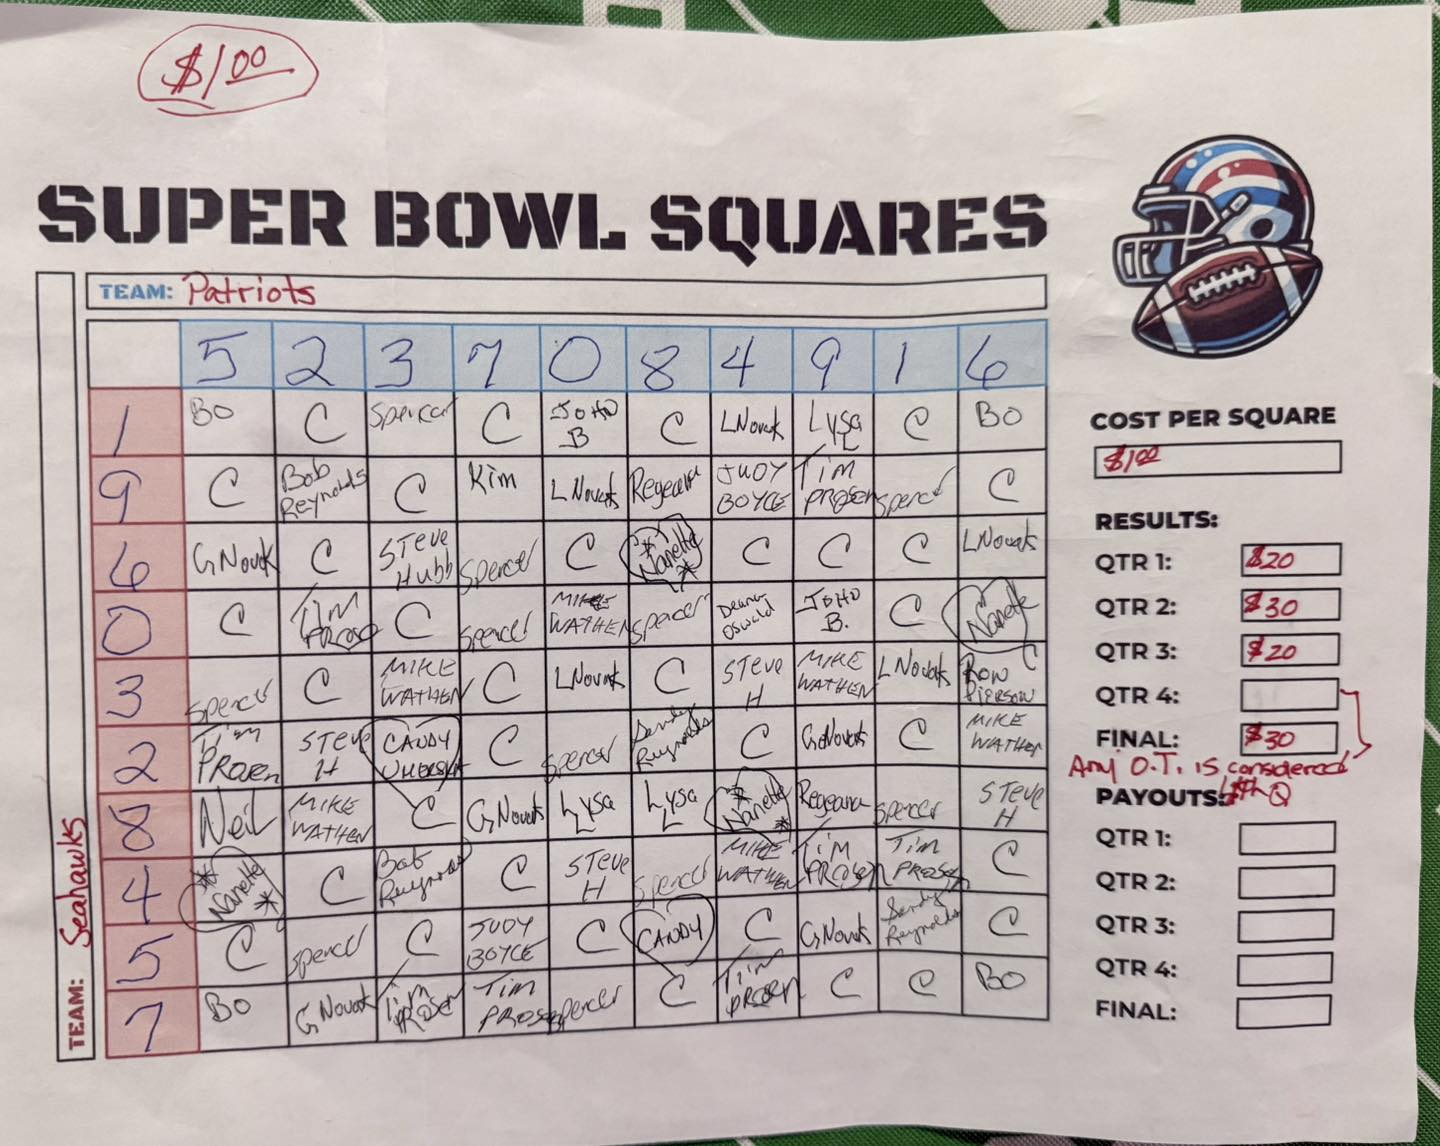 $1.00
SUPER BOWL SQUARES
TEAM: Patriots
TEAM: Seahawks
5 2 3 7 0 8 4 9 1 6
1 Bo C Spencer C JOHN B C LNovak Lysa L C Bo
9 C Bob Reynolds C Kim LNovak JUDY BOYCE Tim PROSEN Spencer C
6 GNovak C STeve Hubb Spencer C *Nanette* C C C LNovak
0 C Tim PROSEN C Spencer MIKE WATHEN Spencer Deana Oswald JOHN B. C Nanette
3 Spencer C MIKE WATHEN C LNovak C STeve H MIKE WATHEN LNovak RON PIERSON
2 Tim PROSEN STeve H CANDY C Spencer Sandy Reynolds C GNovak C MIKE WATHEN
8 Neil MIKE WATHEN C GNovak Lysa L Lysa L *Nanette* Spencer STeve H
4 *Nanette* C Bob Reynolds C STeve H Spencer MIKE WATHEN Tim PROSEN Tim PROSEN C
5 C Spencer C JUDY BOYCE C CANDY C GNovak Sandy Reynolds C
7 Bo GNovak Tim PROSEN Tim PROSEN Spencer C Tim PROSEN C C Bo
COST PER SQUARE
$1.00
RESULTS:
QTR 1: $20
QTR 2: $30
QTR 3: $20
QTR 4:
FINAL: $30
Any O.T. is considered
4th Q
PAYOUTS:
QTR 1:
QTR 2:
QTR 3:
QTR 4:
FINAL: